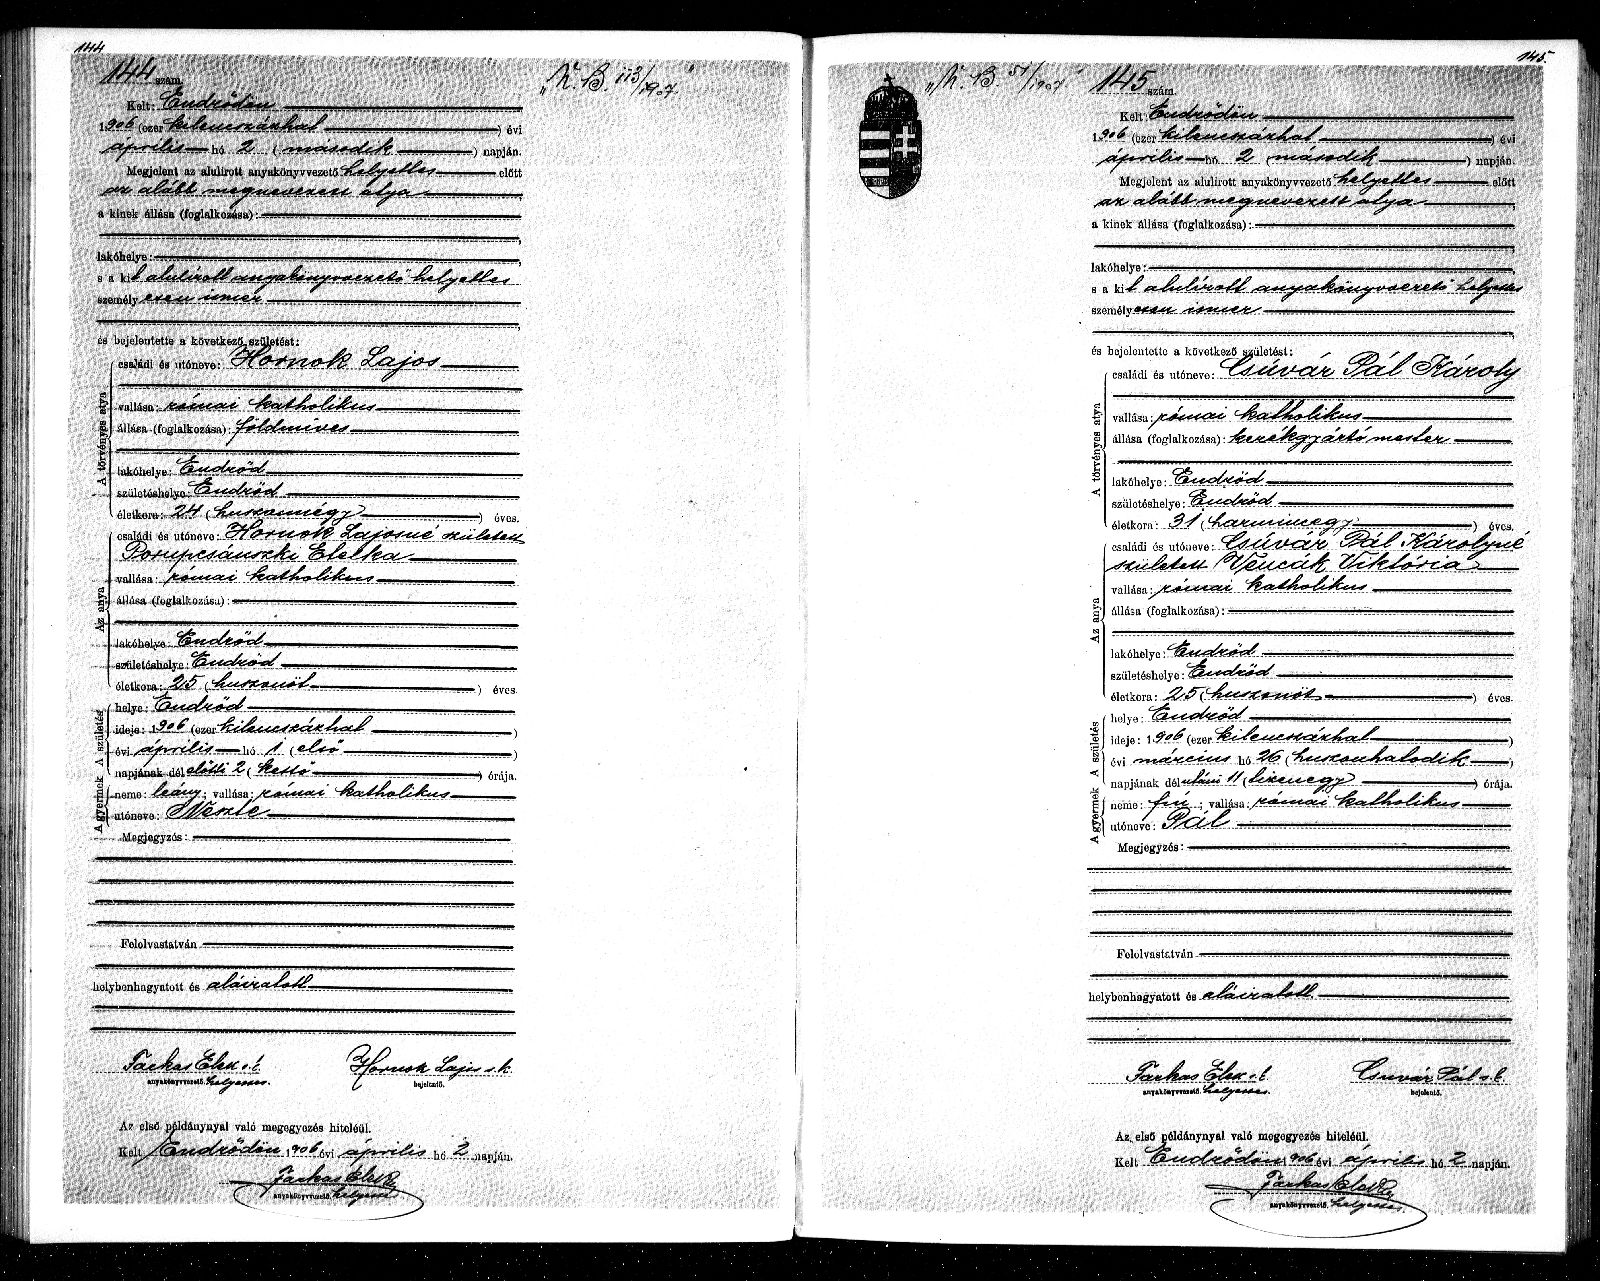 144
144 szám.
„K. B. 113/1907"
Kelt: Endrődön
1906 (ezer kilencszázhat) évi
április hó 2 (második) napján.
Megjelent az alulirott anyakönyvvezető helyettes előtt
az alább megnevezett atya,
a kinek állása (foglalkozása):
lakóhelye:
s a kit alulírott anyakönyvvezető helyettes
személyesen ismer
és bejelentette a következő születést:
A törvényes atya
családi és utóneve: Hornok Lajos
vallása: római katholikus
állása (foglalkozása): földmíves
lakóhelye: Endrőd
születéshelye: Endrőd
életkora: 24 (huszonnégy) éves.
Az anya
családi és utóneve: Hornok Lajosné született
Porupcsánszki Etelka
vallása: római katholikus
állása (foglalkozása):
lakóhelye: Endrőd
születéshelye: Endrőd
életkora: 25 (huszonöt) éves.
A születés
helye: Endrőd
ideje: 1906 (ezer kilencszázhat)
évi április hó 1 (első)
napjának dél előtti 2 (kettő) órája.
A gyermek
neme: leány; vallása: római katholikus
utóneve:
Megjegyzés:
Felolvastatván
helybenhagyatott és aláiratott.
Farkas Elek s. k. Hornok Lajos s. k.
anyakönyvvezető helyettes. bejelentő.
Az első példánynyal való megegyezés hiteléül.
Kelt Endrődön 1906 évi április hó 2 napján.
Farkas Elek
anyakönyvvezető helyettes
145.
„K. B. 51/1907"
145 szám.
Kelt: Endrődön
1906 (ezer kilencszázhat) évi
április hó 2 (második) napján.
Megjelent az alulirott anyakönyvvezető helyettes előtt
az alább megnevezett atya,
a kinek állása (foglalkozása):
lakóhelye:
s a kit alulírott anyakönyvvezető helyettes
személyesen ismer
és bejelentette a következő születést:
A törvényes atya
családi és utóneve: Csúvár Pál Károly
vallása: római katholikus
állása (foglalkozása): kerékgyártó mester
lakóhelye: Endrőd
születéshelye: Endrőd
életkora: 31 (harminegy) éves.
Az anya
családi és utóneve: Csúvár Pál Károlyné
született Vencák Viktória
vallása: római katholikus
állása (foglalkozása):
lakóhelye: Endrőd
születéshelye: Endrőd
életkora: 25 (huszonöt) éves.
A születés
helye: Endrőd
ideje: 1906 (ezer kilencszázhat)
évi március hó 26 (huszonhatodik)
napjának dél utáni 11 (tizenegy) órája.
A gyermek
neme: fiú; vallása: római katholikus
utóneve: Pál
Megjegyzés:
Felolvastatván
helybenhagyatott és aláiratott.
Farkas Elek s. k. Csuvár Pál s. k.
anyakönyvvezető helyettes. bejelentő.
Az első példánynyal való megegyezés hiteléül.
Kelt Endrődön 1906 évi április hó 2 napján.
Farkas Elek
anyakönyvvezető helyettes.